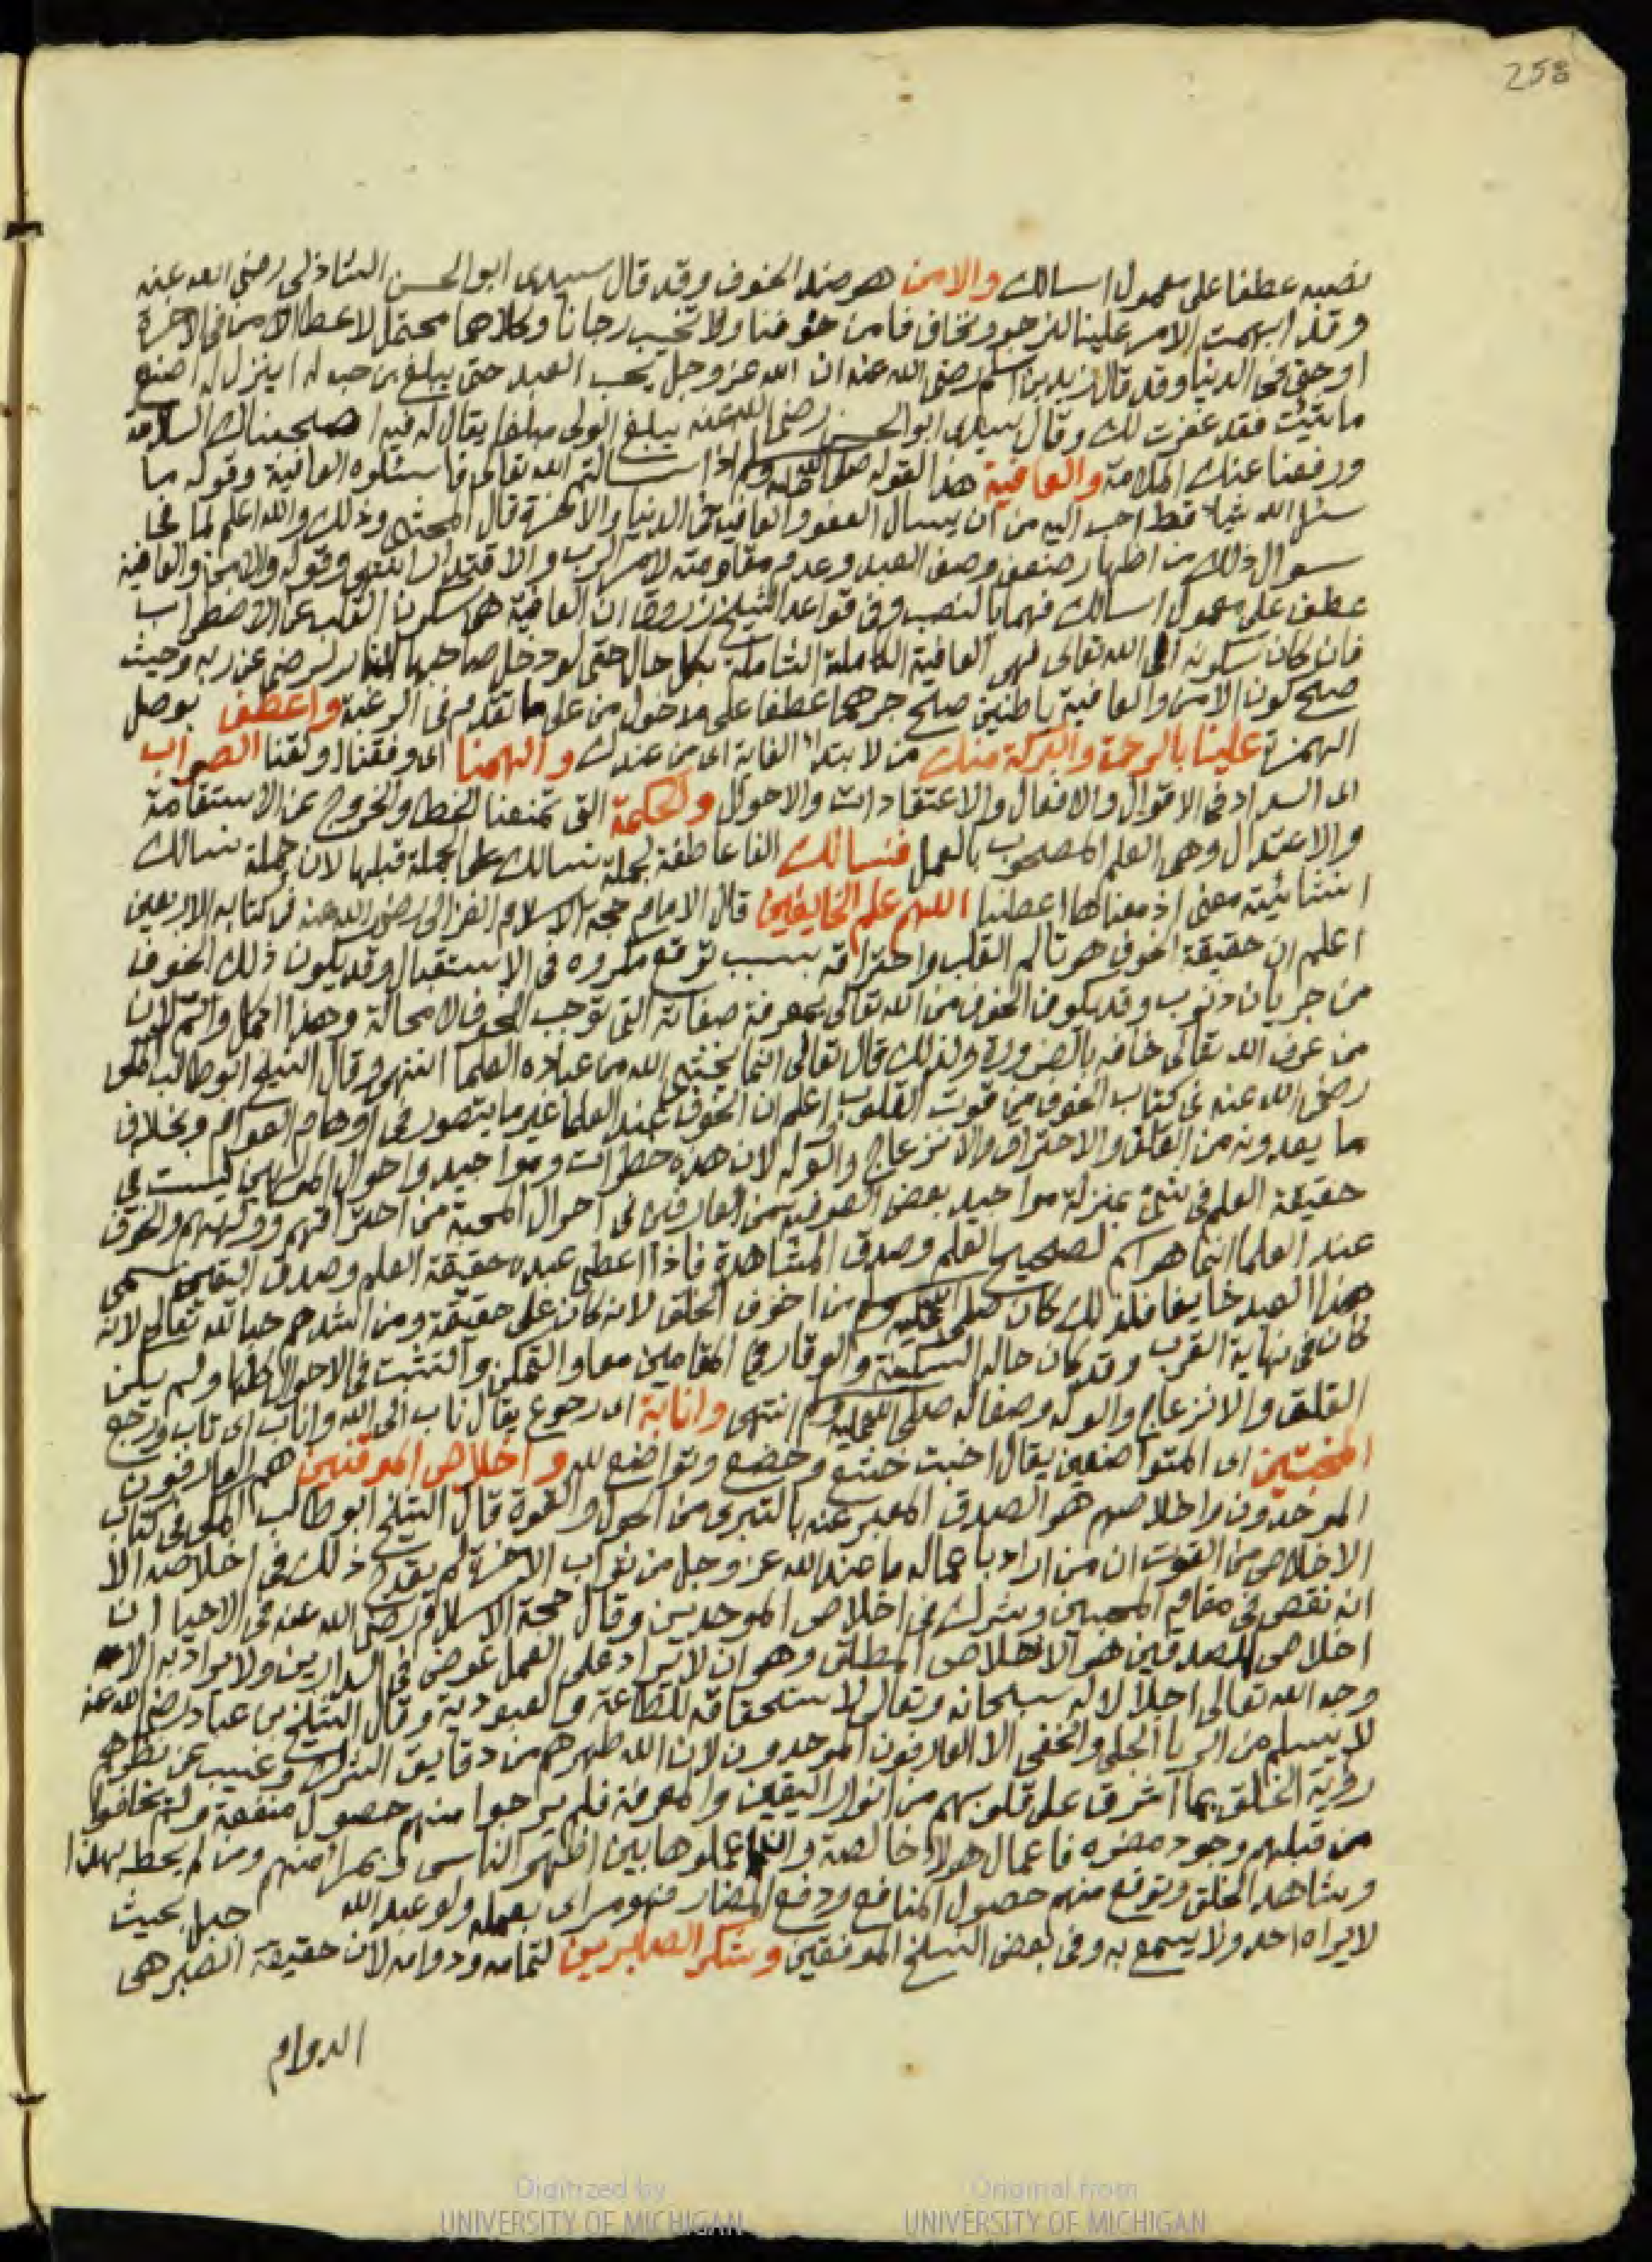 258
نصبه عطفا على معمول اسالك والامن هو ضد الخوف وقد قال سيدى ابو الحسن الشاذلى رضى الله عنه
وقد ابهمت الامر علينا لنرجو ونخاف فامن خوفنا ولا تخيب رجانا وكلاهما محتمل لاعطا الامن فى الاخرة
او حتى فى الدنيا وقد قال زيد بن اسلم رضى الله عنه ان الله عز وجل يحب العبد حتى يبلغ من حبه له ان ينزل له اصنع
ما شيت فقد غفرت لك وقال سيدى ابو الحسن رضى الله عنه يبلغ الولى مبلغا يقال له فيه اصحبناك السلامة
ورفعنا عنك الملامة والعافية هذا لقوله صلى الله عليه وسلم اذا سالتم الله تعالى فاسئلوه العافية وقوله ما
سئل الله شيا قط احب اليه من ان يسال العفو والعافية فى الدنيا والاخرة قال وذلك والله اعلم لما فى
سوال ذلك من اظهار ضعف وصف العبد وعدم مقاومته لامر الرب والاقتدار انتهى وقوله والامن والعافية
عطف على معمول اسالك فهما بالنصب وفى قواعد الشيخ زروق ان العافية هى سكون القلب عن الاضطراب
فان كان سكونه الى الله تعالى فهى العافية الكاملة الشاملة بكل حال حتى لو دخل صاحبها النار لرضى عن ربه وحيث
صلح كون الامن والعافية باطنين صلح جرهما عطفا على مدخول من على ما تقدم فى الرغبة واعطف بوصل
الهمزة علينا بالرحمة والبركة منك من لابتداء الغاية اى من عندك والهمنا اى وفقنا ولقنا الصواب
اى السداد فى الاقوال والافعال والاعتقادات والاحوال والحكمة التى تمنعنا الخطا والخروج عن الاستقامة
والاعتدال وهى العلم المصحوب بالعمل فنسالك الفا عاطفة لجملة نسالك على الجملة قبلها لان جملة نسالك
انشائية معنى اذ معناها اعطنا اللهم علم الخايفين قال الامام حجة الاسلام الغزالى رضى الله عنه فى كتابه الاربعين
اعلم ان حقيقة الخوف هو تالم القلب واحتراقه بسبب توقع مكروه فى الاستقبال وقد يكون ذلك الخوف
من جريان ذنوب وقد يكون الخوف من الله تعالى بمعرفة صفاته التى توجب الخوف لا محالة وهذا اكمل واتم لان
من عرف الله تعالى خافه بالضرورة ولذلك قال تعالى انما يخشى الله من عباده العلما انتهى وقال الشيخ ابو طالب المكى
رضى الله عنه فى كتاب الخوف من قوت القلوب اعلم ان الخوف عند العلما غير ما يتصور فى اوهام العوام وبخلاف
ما يعدونه من القلق والاحتراق والانزعاج والوله لان هذه خطرات ومواجيد واحوال الموالهين ليست فى
حقيقة العلم فى شئ بمنزلة مواجيد بعض الصوفيه من العارفين فى احوال المحبة من احتراقهم وولههم والخوف
عند العلما انما هو اسم لصحيح العلم وصدق المشاهدة فاذا اعطى عبده حقيقة العلم وصدق اليقين سمى
هذا العبد خايفا فلذلك كان صلى الله عليه وسلم من اخوف الخلق لانه كان على حقيقة ومن اشدهم حبا لله تعالى لانه
كان فى نهاية القرب وقد كان حاله السكينة والوقار فى المقامين معا والتمكن والتثبت فى الاحوال كلها ولم يكن
القلق والانزعاج والوله وصفا له صلى الله عليه وسلم انتهى وانابة اى رجوع يقال ناب الى الله واناب اى تاب ورجع
المخبتين اى المتواضعين يقال اخبت خشع وخضع وتواضع لله واخلاص الموقنين هم العارفون
الموحدون واخلاصهم هو الصدق المعبر عنه بالتبرى من الحول والقوة قال الشيخ ابو طالب المكى فى كتاب
الاخلاص من القوت ان من اراد باعماله ما عند الله عز وجل من ثواب الاخرة لم يقدح ذلك فى اخلاصه الا
انه نقص فى مقام المحبين وشرك فى اخلاص الموحدين وقال حجة الاسلام رضى الله عنه فى الاحيا ان
اخلاص الصديقين هو الاخلاص المطلق وهو ان لا يراد على العمل عوض فى الدارين ولا يراد به الا
وجه الله تعالى اجلالا له سبحانه وتعالى لاستحقاقه للطاعة والعبودية وقال الشيخ بن عباد رضى الله عنه
لا يسلم من الريا الجلى والخفى الا العارفون الموحدون لان الله طهرهم من دقايق الشرك وغيب عن نظرهم
روية الخلق بما اشرق على قلوبهم من انوار اليقين والمعرفة فلم يرجوا منهم حصول منفعة ولم يخافوا
من قبلهم وجود مضره فاعمال هولاء خالصة وان عملوها بين اظهر الناس وبمراى منهم ومن لم يحظ بهذا
وشاهد الخلق وتوقع منهم حصول المنافع ودفع المضار فهو مراى بعمله ولو عبد الله جبل بحيث
لا يراه احد ولا يسمع به وفى بعض النسخ الموفقين وشكر الصابرين لتمامه ودوامه لان حقيقة الصبر هى
الدوام
Digitized by UNIVERSITY OF MICHIGAN
Original from UNIVERSITY OF MICHIGAN